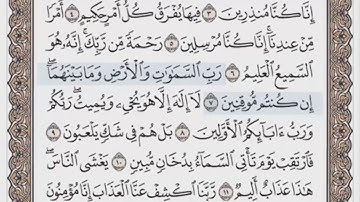 إِنَّا كُنَّا مُنذِرِينَ ٣ فِيهَا يُفْرَقُ كُلُّ أَمْرٍ حَكِيمٍ ٤ أَمْرًا
مِّنْ عِندِنَآ إِنَّا كُنَّا مُرْسِلِينَ ٥ رَحْمَةً مِّن رَّبِّكَ إِنَّهُۥ هُوَ
السَّمِيعُ الْعَلِيمُ ٦ رَبِّ السَّمَٰوَٰتِ وَالْأَرْضِ وَمَا بَيْنَهُمَآ
إِن كُنتُم مُّوقِنِينَ ٧ لَآ إِلَٰهَ إِلَّا هُوَ يُحْيِۦ وَيُمِيتُ رَبُّكُمْ
وَرَبُّ ءَابَآئِكُمُ الْأَوَّلِينَ ٨ بَلْ هُمْ فِى شَكٍّ يَلْعَبُونَ ٩
فَارْتَقِبْ يَوْمَ تَأْتِى السَّمَآءُ بِدُخَانٍ مُّبِينٍ ١٠ يَغْشَى النَّاسَ
هَٰذَا عَذَابٌ أَلِيمٌ ١١ رَّبَّنَا اكْشِفْ عَنَّا الْعَذَابَ إِنَّا مُؤْمِنُونَ